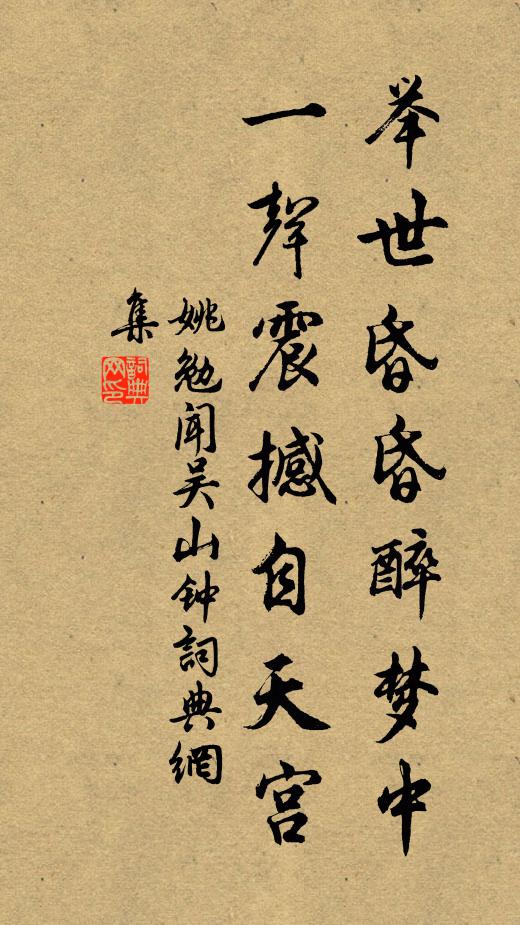 举世昏昏醉梦中
一聲震撼自天宫
姚勉闻吴山钟詞典網
集
詞典網印